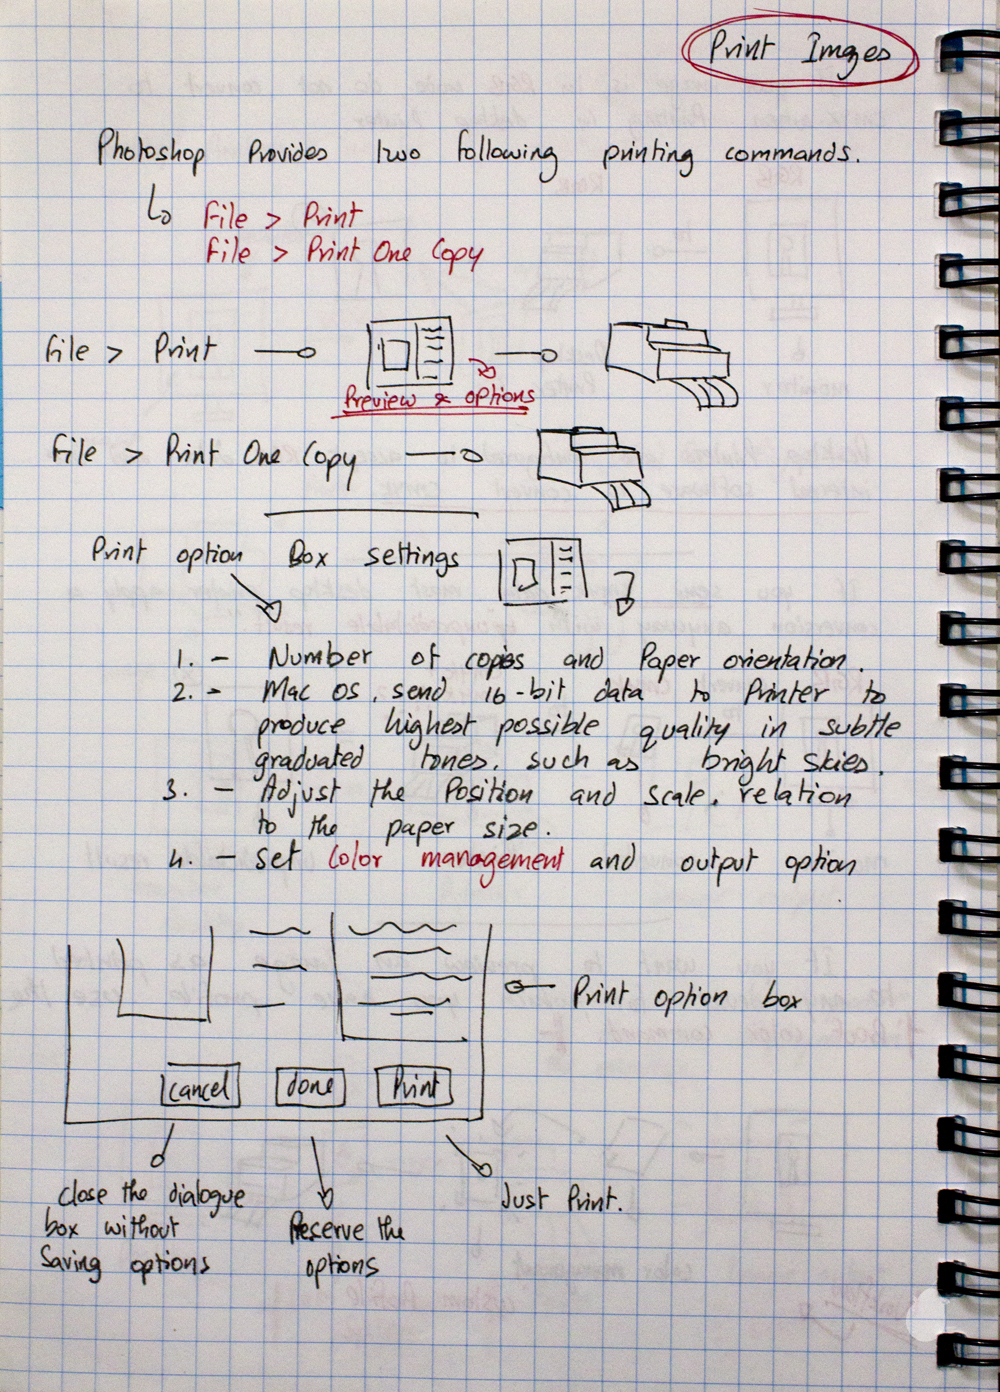 Print Images
Photoshop Provides two following printing commands.
File > Print
File > Print One Copy
File > Print
Preview & options
File > Print One Copy
Print option Box settings
1. - Number of copies and Paper orientation.
2. - Mac OS, send 16-bit data to Printer to
produce highest possible quality in subtle
graduated tones. such as bright skies.
3. - Adjust the Position and scale. relation
to the paper size.
4. - set Color management and output option
Print option box
cancel done Print
close the dialogue
box without
Saving options
Reserve the
options
Just Print.